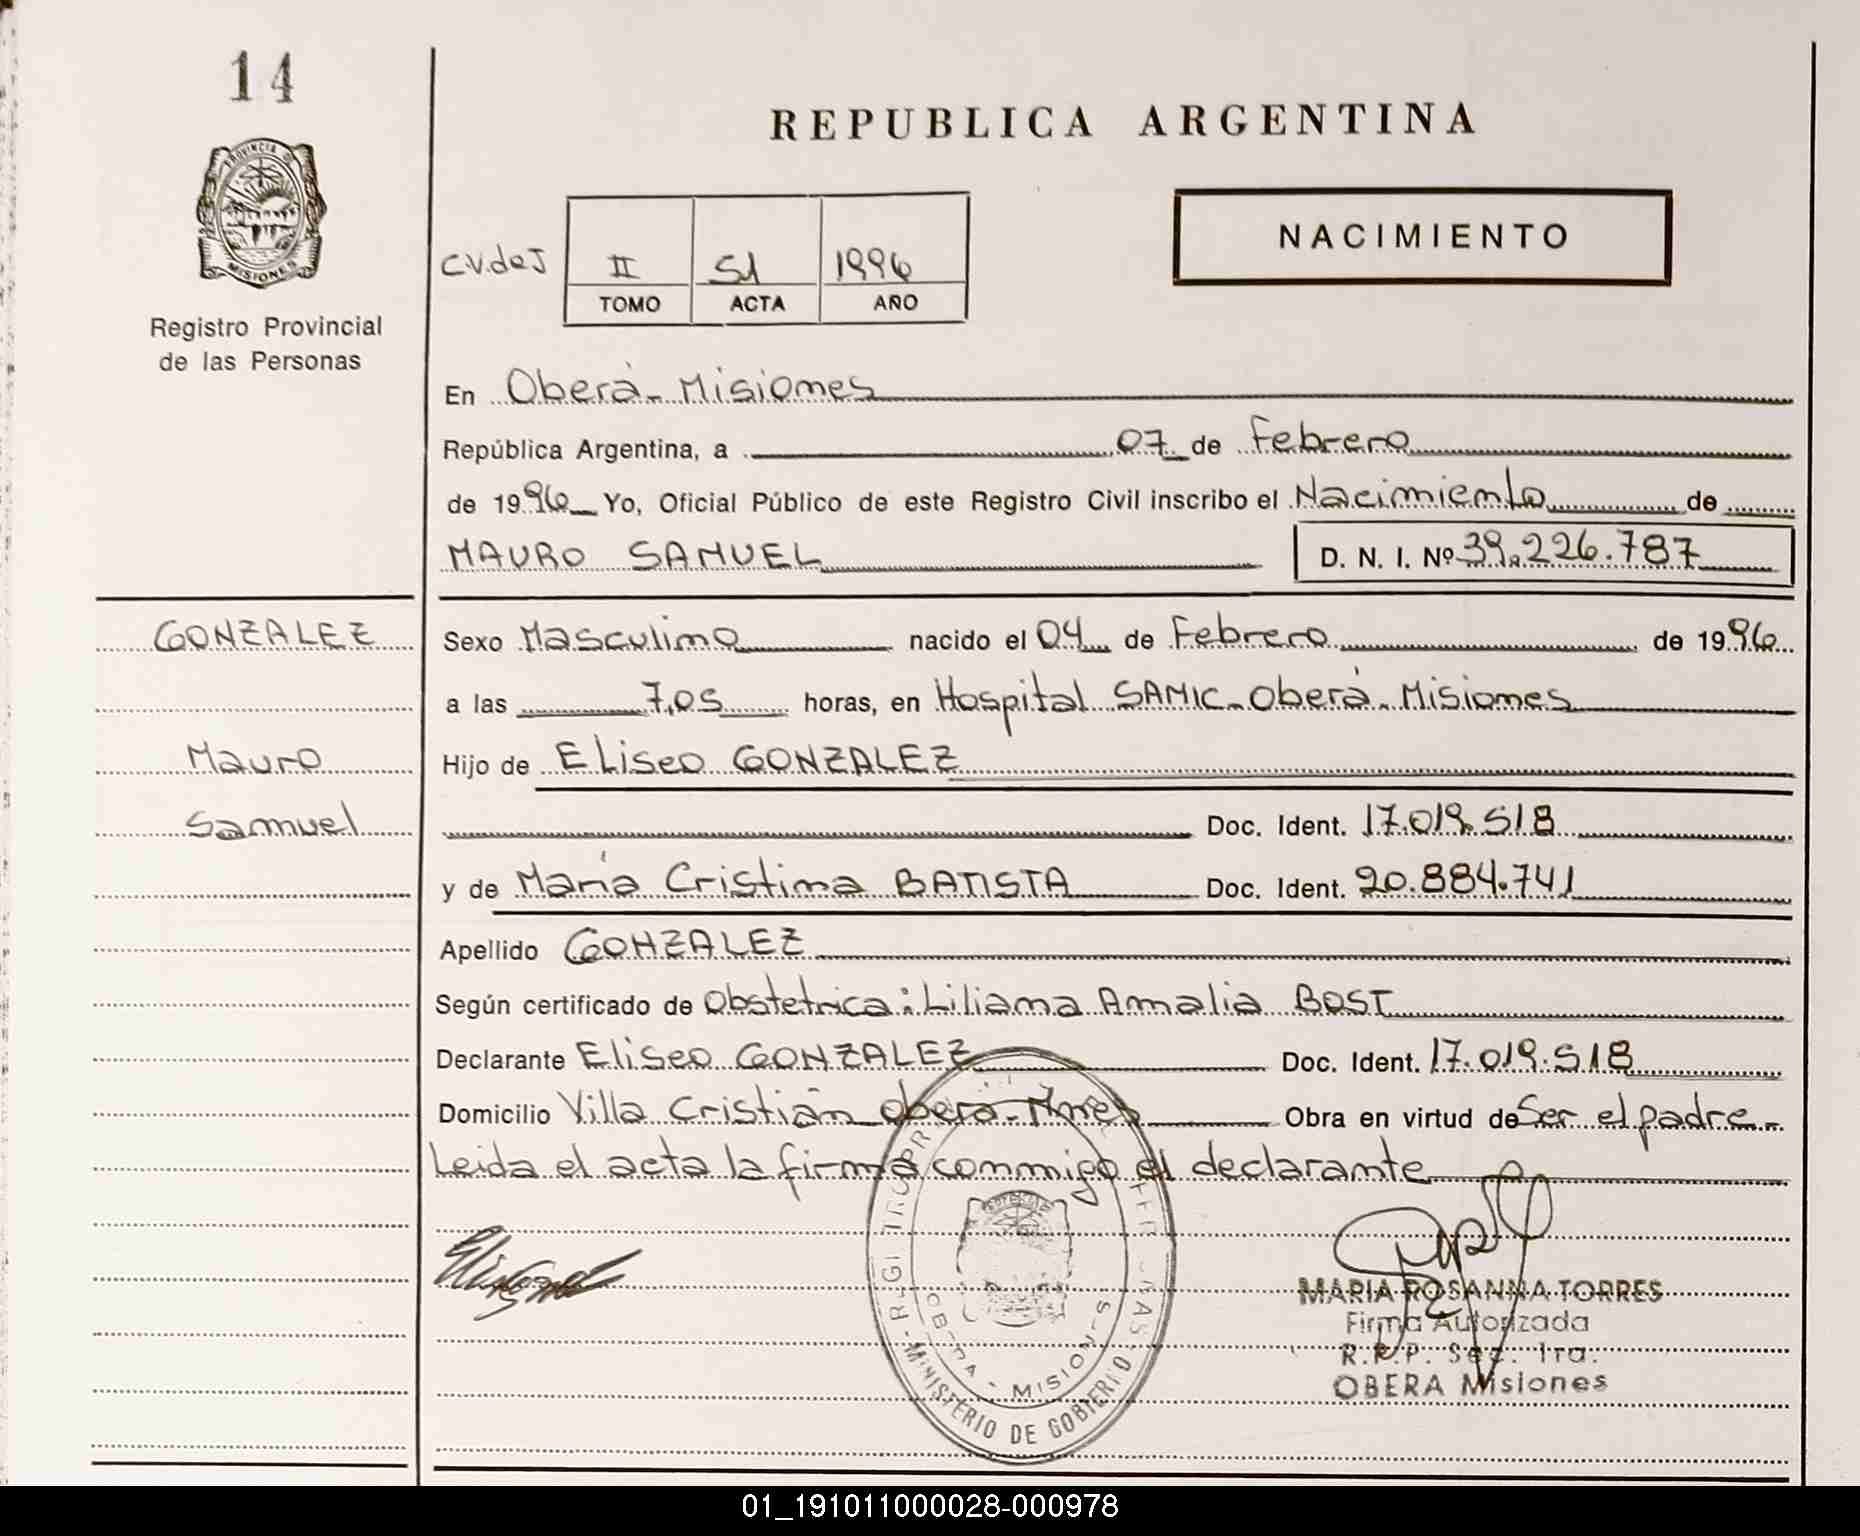 14
REPUBLICA ARGENTINA
PROVINCIA DE
MISIONES
Registro Provincial
de las Personas
NACIMIENTO
C.V.deJ II 51 1996
TOMO ACTA AÑO
En Oberá - Misiones
República Argentina, a 07 de Febrero
de 1996 Yo, Oficial Público de este Registro Civil inscribo el Nacimiento de
MAURO SAMUEL D. N. I. Nº 39.226.787
GONZALEZ
Mauro
Samuel
Sexo Masculino nacido el 04 de Febrero de 1996
a las 7,05 horas, en Hospital SAMIC - Oberá - Misiones
Hijo de Eliseo GONZALEZ
Doc. Ident. 17.019.518
y de María Cristina BATISTA Doc. Ident. 20.884.741
Apellido GONZALEZ
Según certificado de Obstetrica: Liliana Amalia BOST
Declarante Eliseo GONZALEZ Doc. Ident. 17.019.518
Domicilio Villa Cristián Oberá - Mnes Obra en virtud de Ser el padre -
Leida el acta la firma conmigo el declarante
MARIA ROSANNA TORRES
Firma Autorizada
R.P.P. Sec. 1ra.
OBERA Misiones
MISIONES
MINISTERIO DE GOBIERNO
01_191011000028-000978